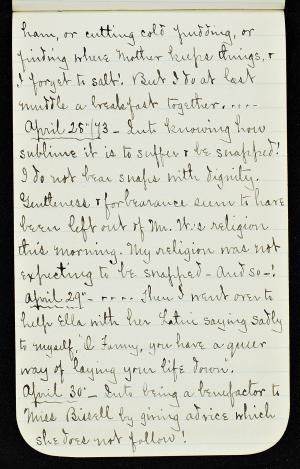 ham, or cutting cold pudding, or
finding where Mother keeps things, &
I forget to salt. But I do at last
muddle a breakfast together. . . . .
April 25" /73 - Into knowing how
sublime it is to suffer & be snapped!
I do not bear snaps with dignity.
Gentleness & forbearance seem to have
been left out of Mr. W.'s religion
this morning. My religion was not
expecting to be snapped - And so - !
April 29" - . . . . Then I went over to
help Ella with her Latin saying sadly
to myself, "O Fanny, you have a queer
way of laying your life down.
April 30" - Into being a benefactor to
Miss Bissell by giving advice which
she does not follow!